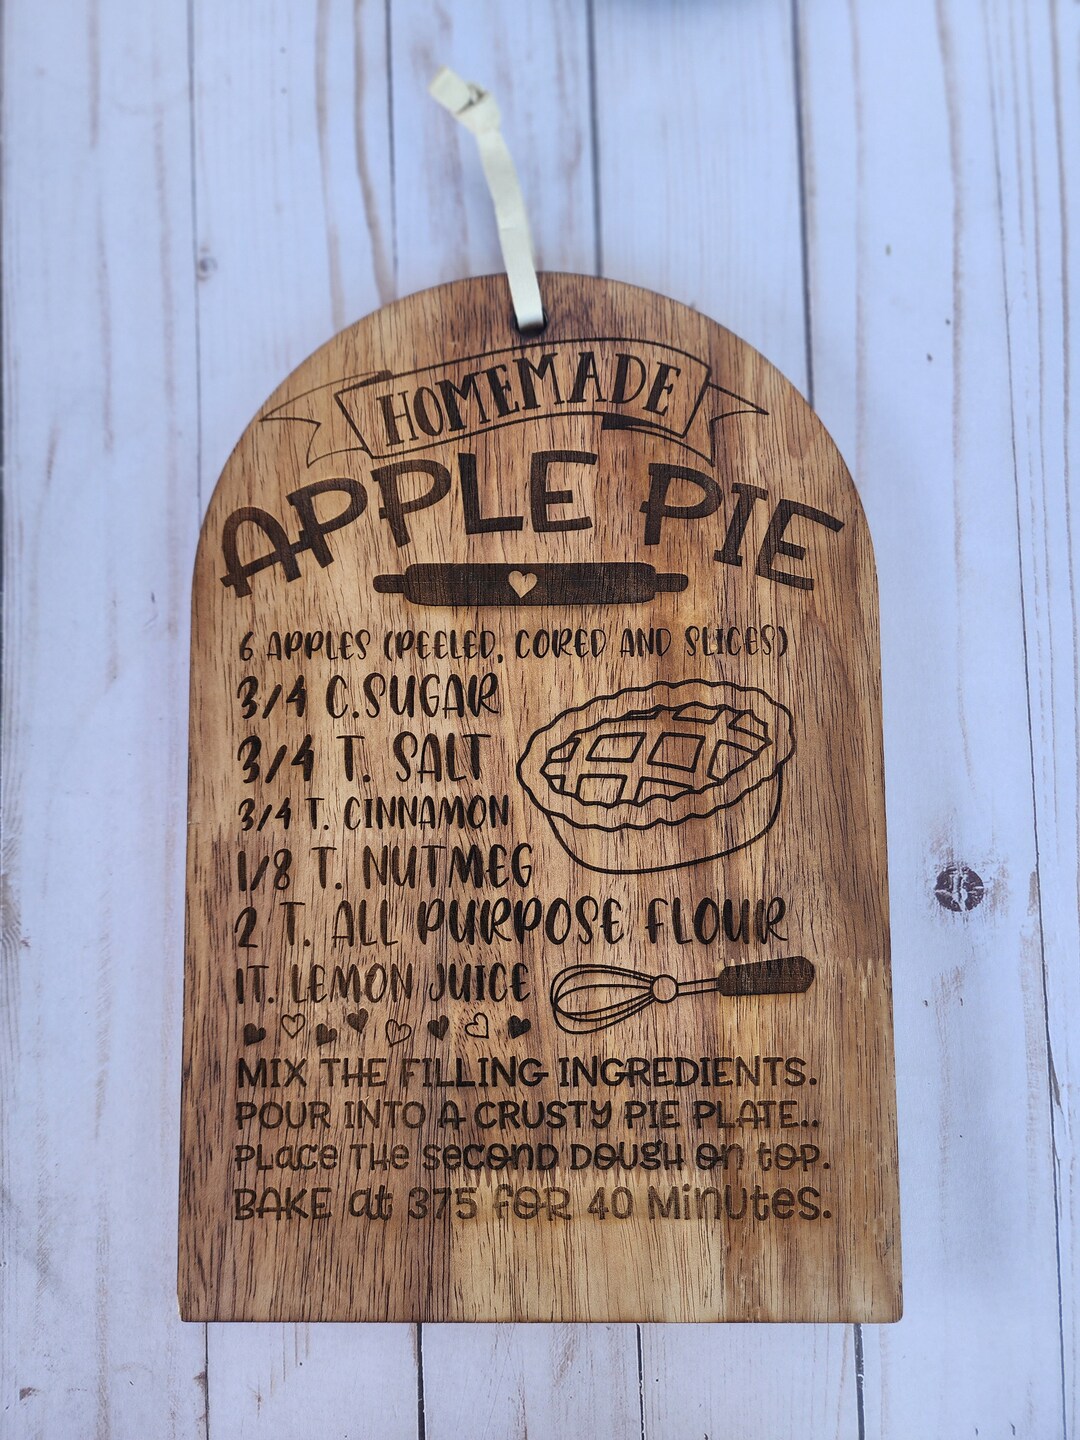 HOMEMADE
APPLE PIE
6 APPLES (PEELED, CORED AND SLICES)
3/4 C.SUGAR
3/4 T. SALT
3/4 T. CINNAMON
1/8 T. NUTMEG
2 T. ALL PURPOSE FLOUR
1T. LEMON JUICE
MIX THE FILLING INGREDIENTS.
POUR INTO A CRUSTY PIE PLATE..
PLace THe second DOUGH on top.
BAKE at 375 FOR 40 Minutes.